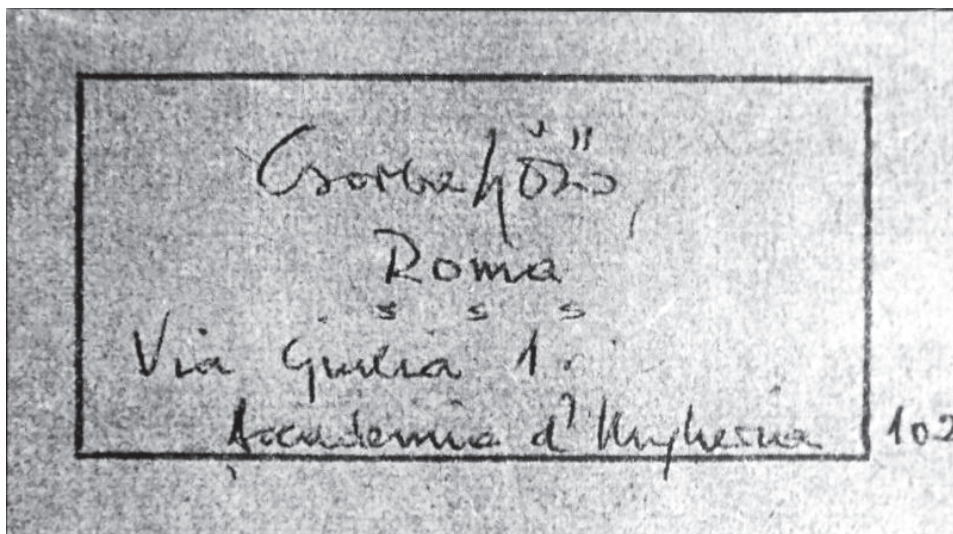 Csorba Győző,
Roma
s s s
Via Giulia 1.
Accademia d'Ungheria 102